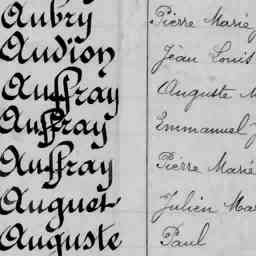 Aubry Pierre Marie
Audion Jean Louis
Auffray Auguste M
Auffray Emmanuel J
Auffray Pierre Marie
Auguet Julien Mar
Auguste Paul